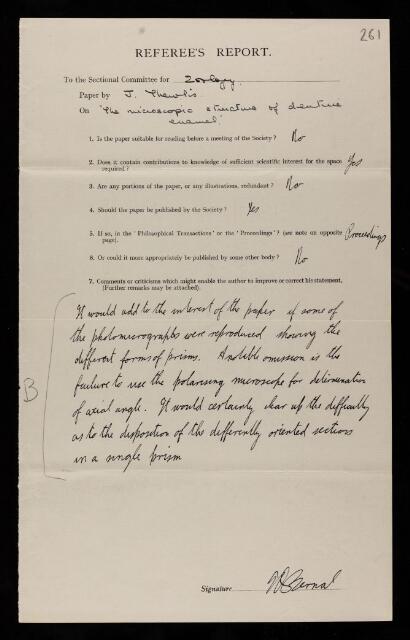 261
REFEREE'S REPORT.
To the Sectional Committee for Zoology.
Paper by J. Thewlis
On "The microscopic structure of dentine
enamel."
1. Is the paper suitable for reading before a meeting of the Society? No
2. Does it contain contributions to knowledge of sufficient scientific interest for the space
required? Yes
3. Are any portions of the paper, or any illustrations, redundant? No
4. Should the paper be published by the Society? Yes
5. If so, in the 'Philosophical Transactions' or the 'Proceedings'? (see note on opposite
page). Proceedings
6. Or could it more appropriately be published by some other body? No
7. Comments or criticisms which might enable the author to improve or correct his statement,
(Further remarks may be attached).
It would add to the interest of the paper if some of
the photomicrographs were reproduced showing the
different forms of prisms. A notable omission is the
failure to use the polarising microscope for determination
of axial angle. It would certainly clear up the difficulty
as to the disposition of the differently oriented sections
in a single prism
B
Signature JD Bernal